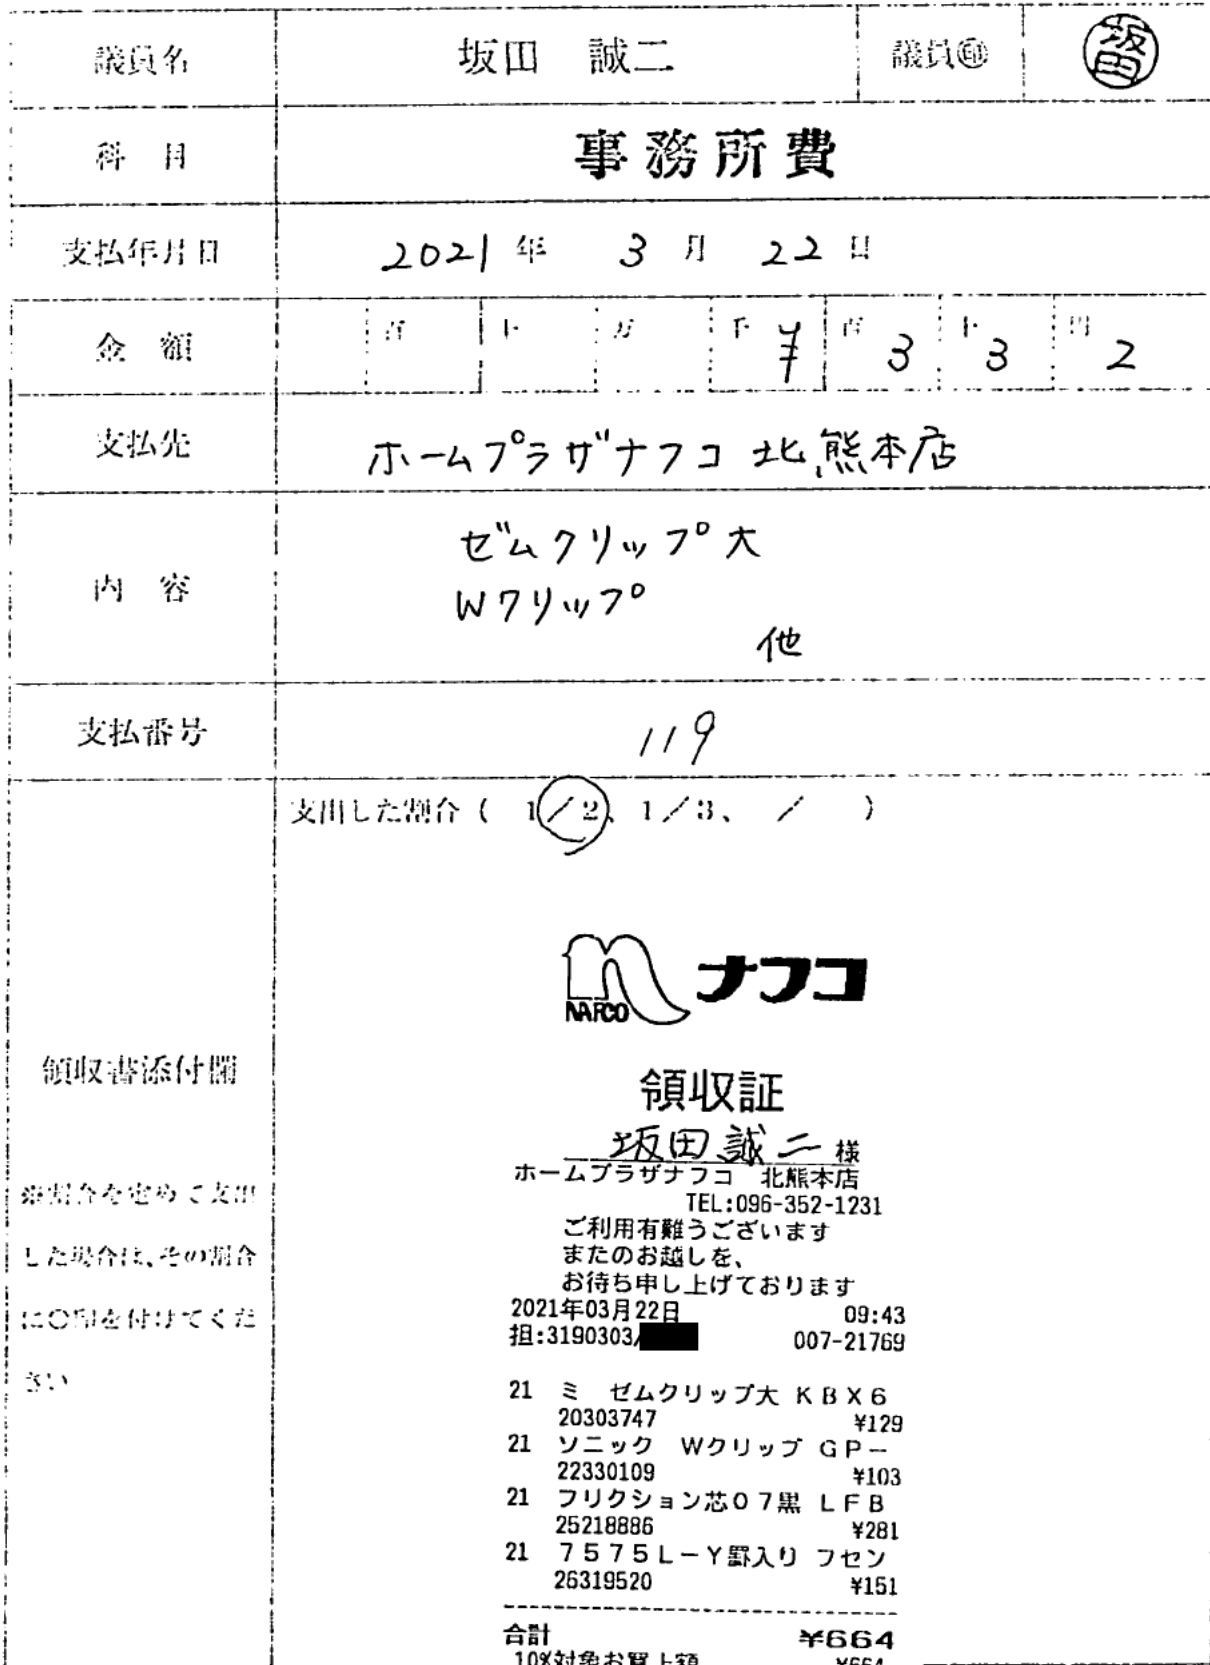 議員名 坂田 誠二 議員㊞ 坂田
科 目 事務所費
支払年月日 2021 年 3 月 22 日
金 額 百 十 万 千 ¥ 百 3 十 3 円 2
支払先 ホームプラザナフコ 北熊本店
内 容
ゼムクリップ大
Wクリップ
他
支払番号 119
支出した割合 ( 1/2、1/3、 / )
NAFCO ナフコ
領収書添付欄
※割合を定めて支出
した場合は、その割合
に〇印を付けてくだ
さい
領収証
坂田誠二 様
ホームプラザナフコ 北熊本店
TEL:096-352-1231
ご利用有難うございます
またのお越しを、
お待ち申し上げております
2021年03月22日 09:43
担:3190303/ 007-21769
21 ミ ゼムクリップ大 KBX6
20303747 ¥129
21 ソニック Wクリップ GP-
22330109 ¥103
21 フリクション芯07黒 LFB
25218886 ¥281
21 7575L-Y罫入り フセン
26319520 ¥151
合計 ¥664
10%対象お買上額 ¥664